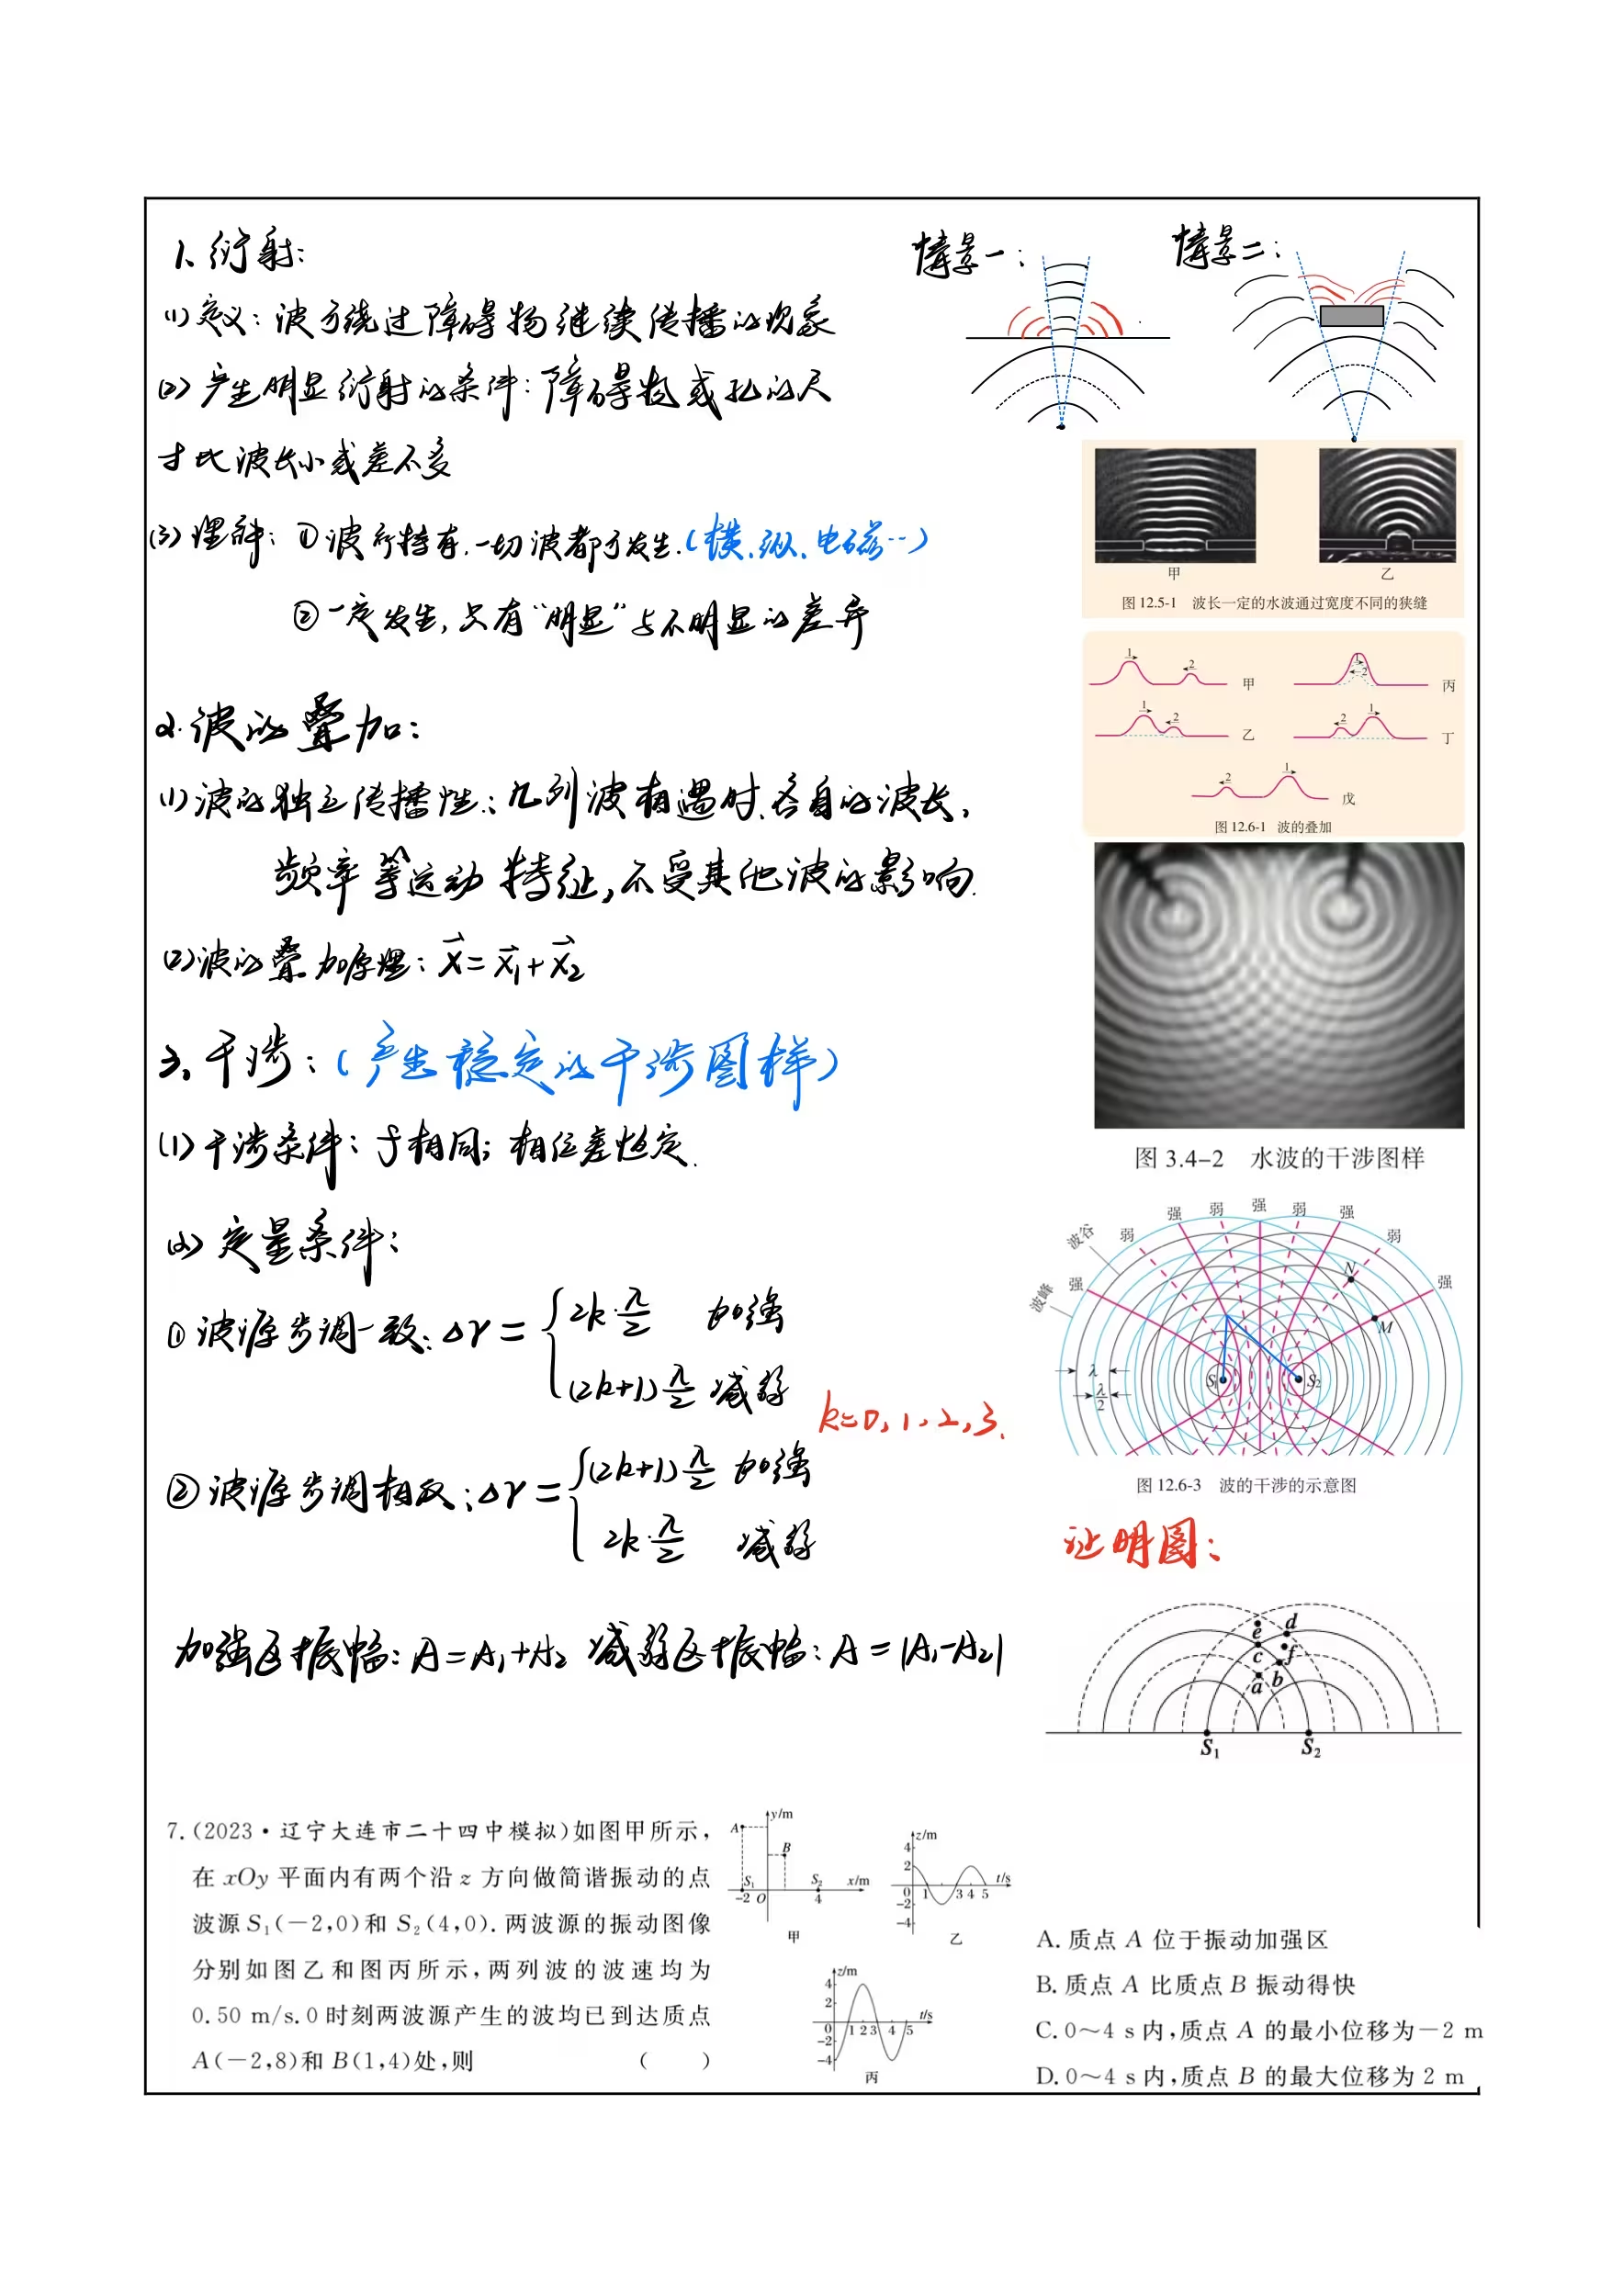 1、衍射:
情景一:
情景二:
(1)定义: 波可绕过障碍物继续传播的现象
(2)产生明显衍射的条件: 障碍物或孔的尺
寸比波长小或差不多
甲
乙
图 12.5-1 波长一定的水波通过宽度不同的狭缝
(3)理解: ①波所特有.一切波都可发生.(横、纵、电磁…)
②一定发生, 只有“明显”与不明显的差异
1 2 甲
1 2 丙
1 2 乙
2 1 丁
2 1 戊
图 12.6-1 波的叠加
2.波的叠加:
(1)波的独立传播性: 几列波相遇时、各自的波长,
频率等运动特征,不受其他波的影响.
(2)波的叠加原理: x⃗=x⃗₁+x⃗₂
图 3.4-2 水波的干涉图样
3、干涉:(产生稳定的干涉图样)
(1)干涉条件: f相同; 相位差恒定.
(2)定量条件:
①波源步调一致: Δr = { 2k·λ/2 加强
(2k+1)λ/2 减弱
k=0,1,2,3.
②波源步调相反: Δr = { (2k+1)λ/2 加强
2k·λ/2 减弱
强 弱 强 弱 强 弱 强 弱 强
波谷
波峰
N
M
λ
λ/2
S₁
S₂
图 12.6-3 波的干涉的示意图
证明图:
e d
c f
a b
S₁ S₂
加强区振幅: A=A₁+A₂ 减弱区振幅: A=|A₁-A₂|
7.(2023·辽宁大连市二十四中模拟)如图甲所示,
在 xOy 平面内有两个沿 z 方向做简谐振动的点
波源 S₁(-2,0)和 S₂(4,0).两波源的振动图像
分别如图乙和图丙所示,两列波的波速均为
0.50 m/s.0 时刻两波源产生的波均已到达质点
A(-2,8)和 B(1,4)处,则 ( )
y/m
A
B
S₁ S₂ x/m
-2 O 4
甲
z/m
4
2
0 1 3 4 5 t/s
-2
-4
乙
z/m
4
2
0 1 2 3 4 5 t/s
-2
-4
丙
A.质点 A 位于振动加强区
B.质点 A 比质点 B 振动得快
C.0～4 s 内,质点 A 的最小位移为-2 m
D.0～4 s 内,质点 B 的最大位移为 2 m